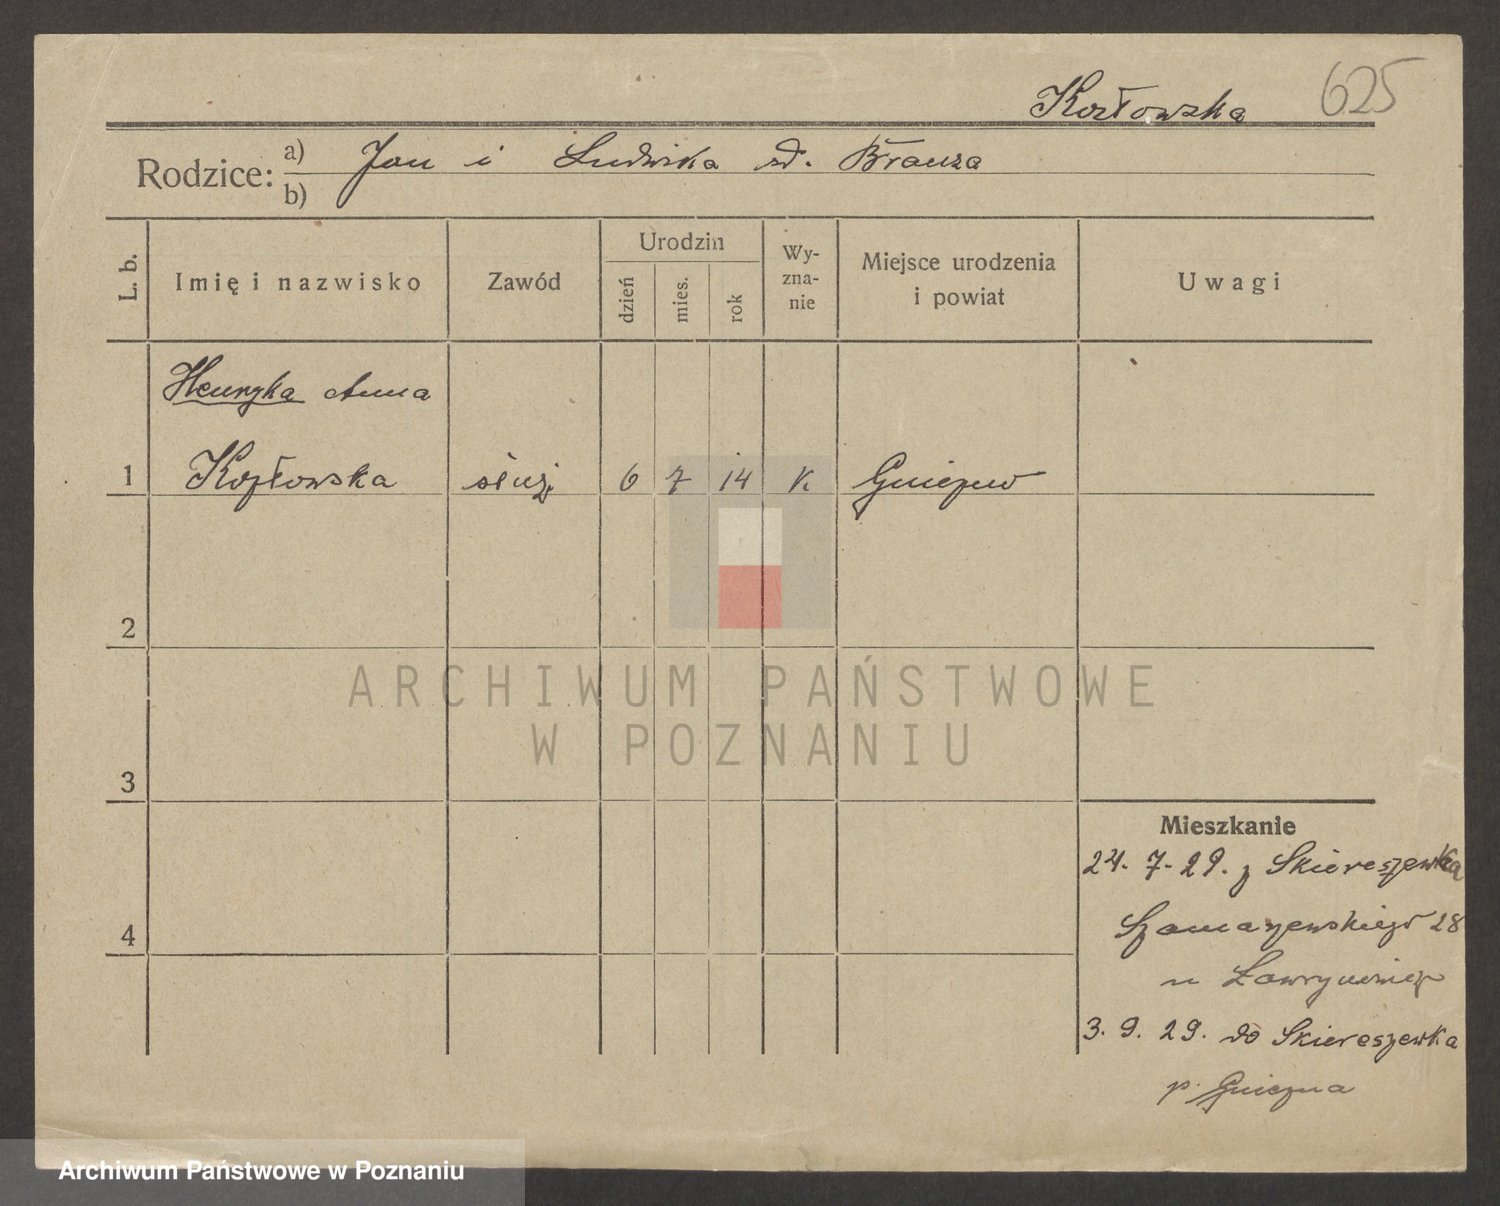 Kozłowska 625
Rodzice: a) Jan i Ludwika zd. Brauza
b)
L. b.
Imię i nazwisko
Zawód
Urodzin
dzień
mies.
rok
Wy-
zna-
nie
Miejsce urodzenia
i powiat
Uwagi
Henryka Anna
1 Kozłowska służ. 6 7 14 K. Gniezno
2
3
4
Mieszkanie
24. 7. 29. z Skiereszewka
28
u
3. 9. 29. do Skiereszewka
p. Gniezna
ARCHIWUM PAŃSTWOWE
W POZNANIU
Archiwum Państwowe w Poznaniu